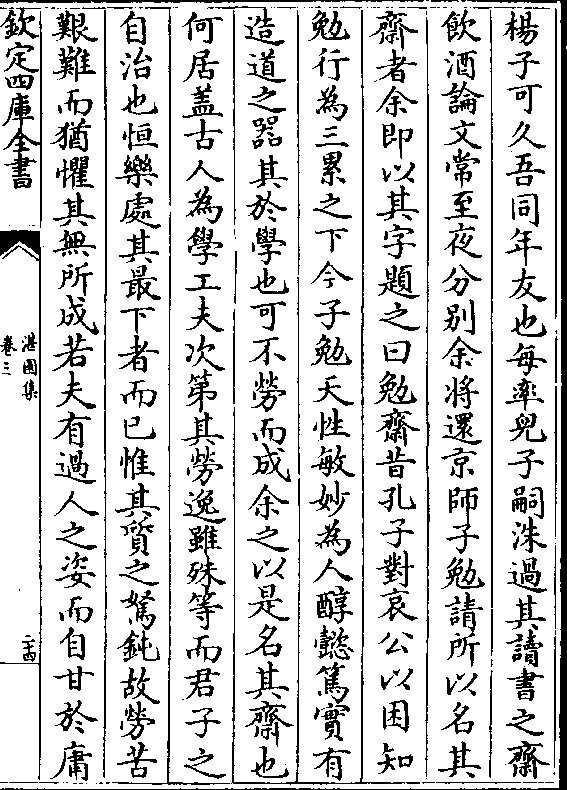 楊子可久吾同年友也每率兒子嗣洙過其讀書之齋
飲酒論文常至夜分别余將還京師子勉請所以名其
齋者余即以其字題之曰勉齋昔孔子對哀公以困知
勉行為三累之下今子勉天性敏妙為人醇懿篤實有
造道之器其於學也可不勞而成余之以是名其齋也
何居盖古人為學工夫次第其勞逸雖殊等而君子之
自治也恒樂處其最下者而已惟其質之駑鈍故勞苦
艱難而猶懼其無所成若夫有過人之姿而自甘於庸
欽定四庫全書
湛園集
卷三
二十四